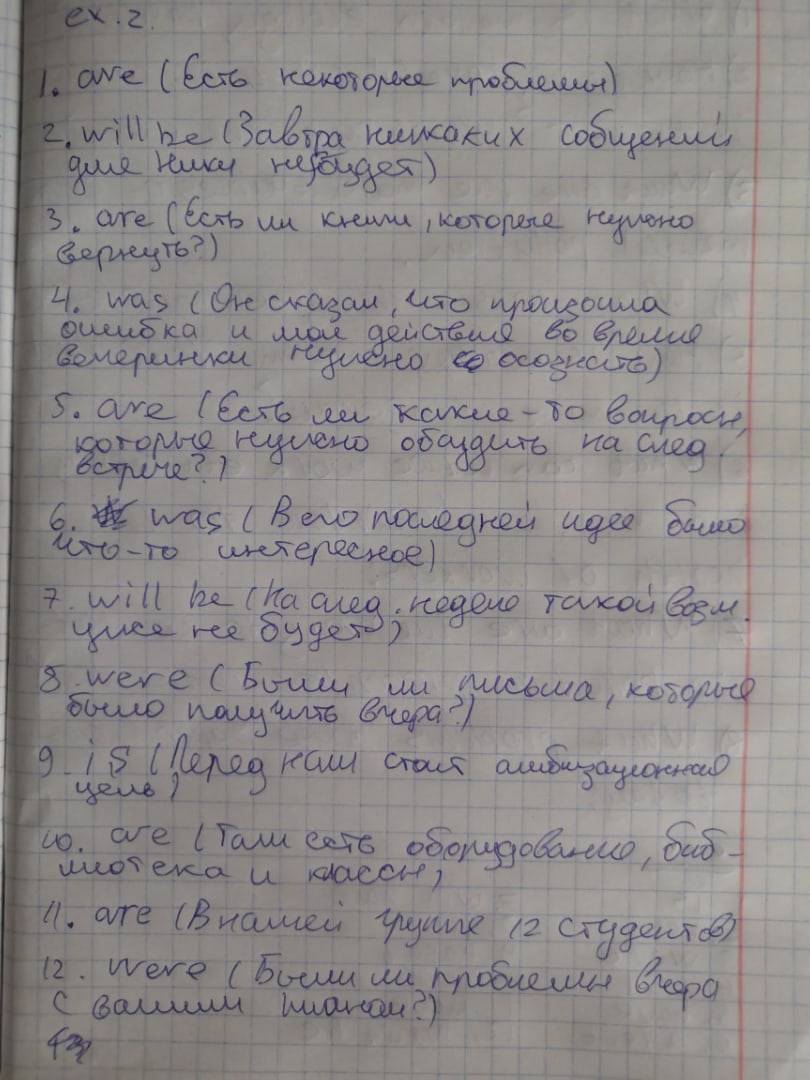 ex. 2.
1. are (Есть некоторые проблемы)
2. will be (Завтра никаких собщений
для Ники не будет)
3. are (Есть ли книги, которые нужно
вернуть?)
4. was (Он сказал, что произошла
ошибка и мои действия во время
вечеринки нужно осознать)
5. are (Есть ли какие-то вопросы,
которые нужно обсудить на след.
встрече?)
6. was (В его последней идее было
что-то интересное)
7. will be (На след. неделе такой возм.
уже не будет)
8. were (Были ли письма, которые
было получить вчера?)
9. is (Перед нам стоит амбизационная
цель)
10. are (Там есть оборудование, биб-
лиотека и классы)
11. are (В нашей группе 12 студентов)
12. were (Были ли проблемы вчера
с вашим планом?)